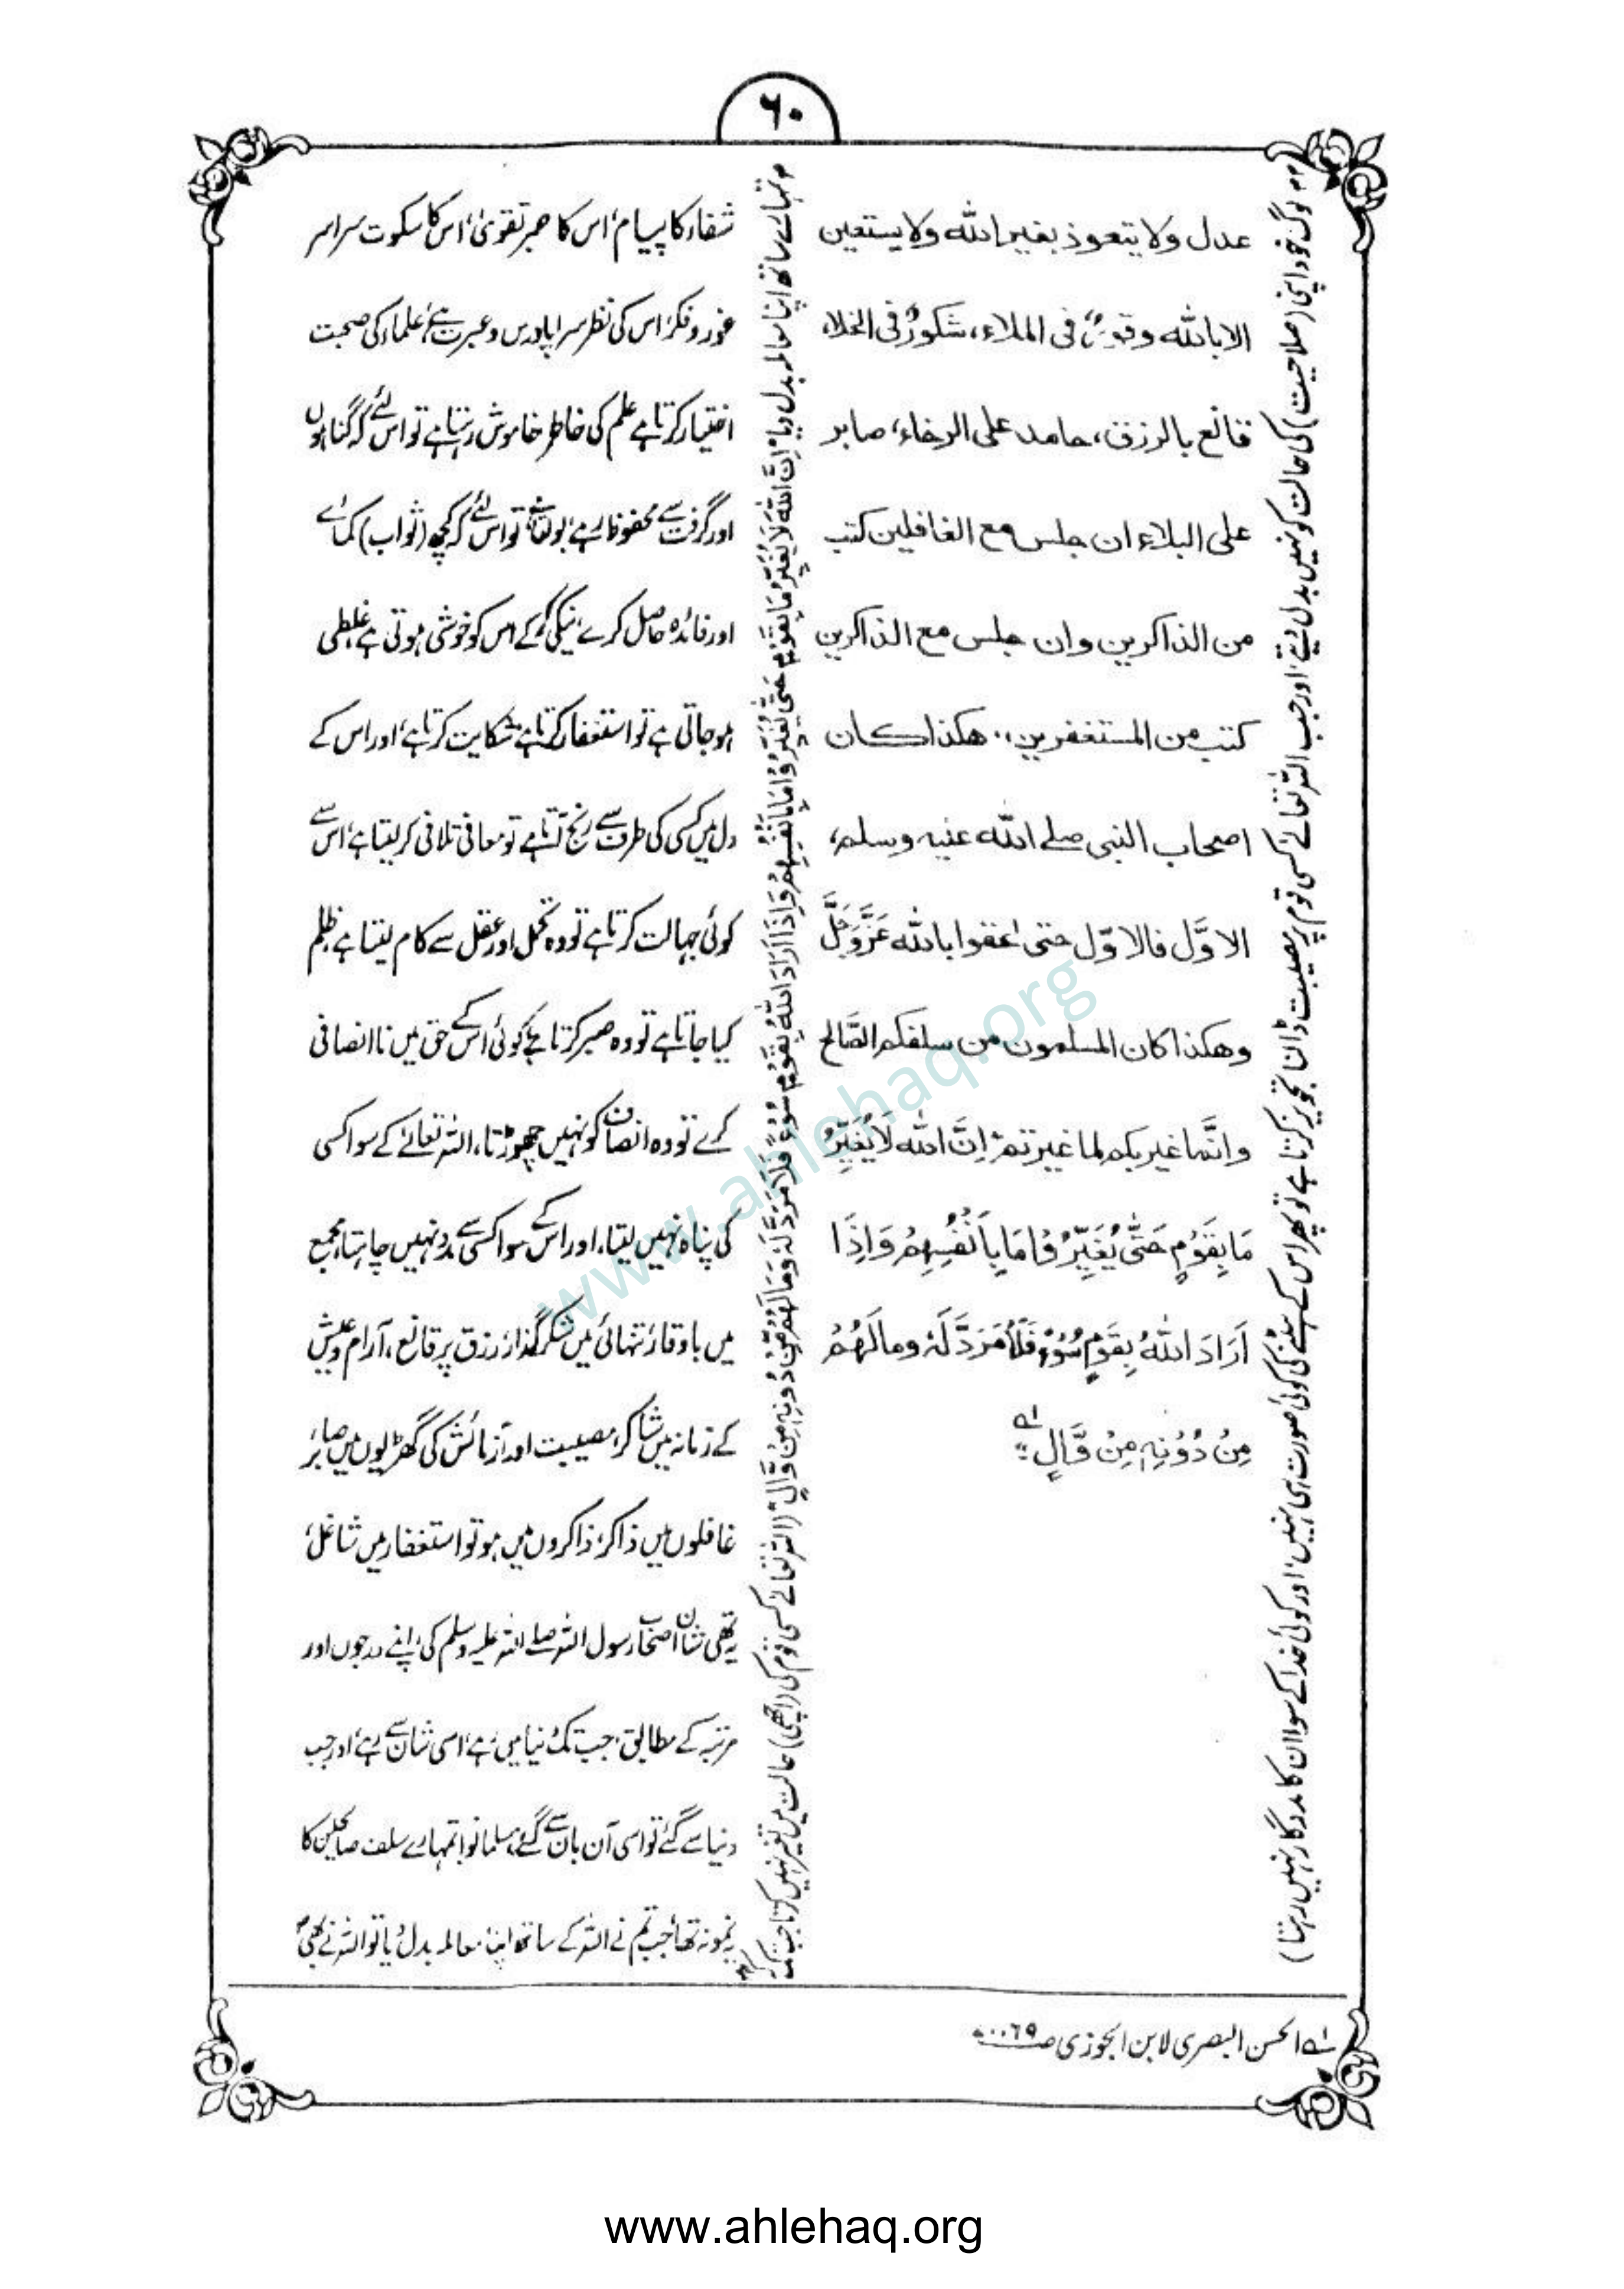 ۶۰
عدل ولا يتعوذ بغير الله ولا يستعين
الا بالله وقورٌ فى الملاء، شكورٌ فى الخلاء،
قانع بالرزق، حامد على الرخاء، صابر
على البلاء ان جلس مع الغافلين كتب
من الذاكرين وان جلس مع الذاكرين
كتب من المستغفرين،. هكذا كان
اصحاب النبى صلے الله عليه وسلم،
الاوَّل فالاوّل حتى لحقوا بالله عَزَّوَجَلَّ
وهكذا كان المسلمون من سلفكم الصَّالح
وانَّما غير بكم لما غيرتم اِنَّ الله لَا يُغَيِّرُ
مَا بِقَوْمٍ حَتّٰى يُغَيِّرُوْا مَا بِاَنْفُسِهِمْ وَاِذَا
اَرَادَ اللّٰهُ بِقَوْمٍ سُوْءً فَلَا مَرَدَّ لَهٗ وما لَهُمْ
مِنْ دُوْنِهٖ مِنْ وَّالٍ" لہ
شفاء کا پیام، اس کا صبر تقویٰ، اس کا سکوت سراسر
غور و فکر، اس کی نظر سراپا درس و عبرت ہے، علماء کی صحبت
اختیار کرتا ہے علم کی خاطر خاموش رہتا ہے تو اس لئے کہ گناہوں
اور گرفت سے محفوظ رہے، بولتا ہے تو اس لئے کہ کچھ (ثواب) کمائے
اور فائدہ حاصل کرے، نیکی کرکے اس کو خوشی ہوتی ہے غلطی
ہو جاتی ہے تو استغفار کرتا ہے شکایت کرتا ہے، اور اس کے
دل میں کسی کی طرف سے رنج آتا ہے تو معافی تلافی کر لیتا ہے، اس سے
کوئی جہالت کرتا ہے تو وہ تحمل اور عقل سے کام لیتا ہے، ظلم
کیا جاتا ہے تو وہ صبر کرتا ہے کوئی اس کے حق میں نا انصافی
کرے تو وہ انصاف کو نہیں چھوڑتا، اللہ تعالےٰ کے سوا کسی
کی پناہ نہیں لیتا، اور اس کے سوا کسی سے مدد نہیں چاہتا، مجمع
میں باوقار، تنہائی میں شکر گذار، رزق پر قانع، آرام و عیش
کے زمانہ میں شاکر، مصیبت اور آزمائش کی گھڑیوں میں صابر،
غافلوں میں ذاکر، ذاکروں میں ہو تو استغفار میں شاغل،
یہ تھی شان اصحاب رسول اللہ صلے اللہ علیہ وسلم کی، اپنے درجوں اور
مرتبہ کے مطابق، جب تک دنیا میں رہے، اسی شان سے رہے، اور جب
دنیا سے گئے تو اسی آن بان سے گئے، مسلمانو! تمہارے سلف صالحین کا
یہ نمونہ تھا، جب تم نے اللہ کے ساتھ اپنا معاملہ بدل دیا تو اللہ نے بھی
تمہارے ساتھ اپنا معاملہ بدل دیا "اِنَّ اللّٰهَ لَا يُغَيِّرُ مَا بِقَوْمٍ حَتّٰى يُغَيِّرُوْا مَا بِاَنْفُسِهِمْ وَاِذَا اَرَادَ اللّٰهُ بِقَوْمٍ سُوْءً فَلَا مَرَدَّ لَهٗ وَمَا لَهُمْ مِّنْ دُوْنِهٖ مِنْ وَّالٍ" (اللہ تعالےٰ کسی قوم کی (اچھی) حالت میں تغیر نہیں کرتا جب تک
وہ لوگ خود اپنی (صلاحیت) کی حالت کو نہیں بدل دیتے، اور جب اللہ تعالےٰ کسی قوم پر مصیبت ڈالنا تجویز کرتا ہے تو پھر اس کے ہٹنے کی کوئی صورت ہی نہیں، اور کوئی خدا کے سوا ان کا مددگار نہیں رہتا)
لہ الحسن البصری لابن الجوزی صـ ۶۹۔۷۰
www.ahlehaq.org
www.ahlehaq.org